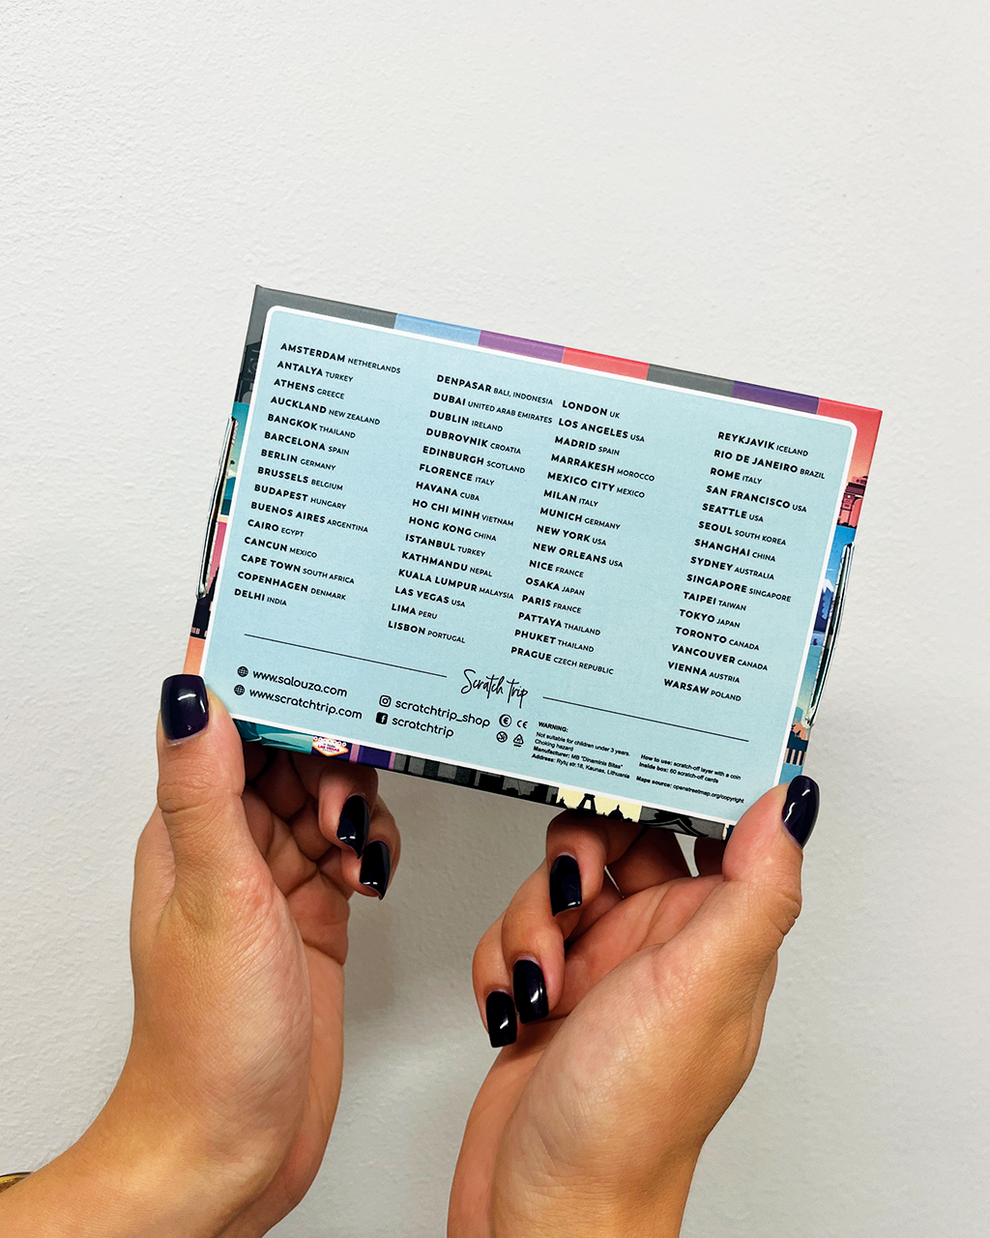 AMSTERDAM NETHERLANDS
ANTALYA TURKEY
ATHENS GREECE
AUCKLAND NEW ZEALAND
BANGKOK THAILAND
BARCELONA SPAIN
BERLIN GERMANY
BRUSSELS BELGIUM
BUDAPEST HUNGARY
BUENOS AIRES ARGENTINA
CAIRO EGYPT
CANCUN MEXICO
CAPE TOWN SOUTH AFRICA
COPENHAGEN DENMARK
DELHI INDIA
DENPASAR BALI, INDONESIA
DUBAI UNITED ARAB EMIRATES
DUBLIN IRELAND
DUBROVNIK CROATIA
EDINBURGH SCOTLAND
FLORENCE ITALY
HAVANA CUBA
HO CHI MINH VIETNAM
HONG KONG CHINA
ISTANBUL TURKEY
KATHMANDU NEPAL
KUALA LUMPUR MALAYSIA
LAS VEGAS USA
LIMA PERU
LISBON PORTUGAL
LONDON UK
LOS ANGELES USA
MADRID SPAIN
MARRAKESH MOROCCO
MEXICO CITY MEXICO
MILAN ITALY
MUNICH GERMANY
NEW YORK USA
NEW ORLEANS USA
NICE FRANCE
OSAKA JAPAN
PARIS FRANCE
PATTAYA THAILAND
PHUKET THAILAND
PRAGUE CZECH REPUBLIC
REYKJAVIK ICELAND
RIO DE JANEIRO BRAZIL
ROME ITALY
SAN FRANCISCO USA
SEATTLE USA
SEOUL SOUTH KOREA
SHANGHAI CHINA
SYDNEY AUSTRALIA
SINGAPORE SINGAPORE
TAIPEI TAIWAN
TOKYO JAPAN
TORONTO CANADA
VANCOUVER CANADA
VIENNA AUSTRIA
WARSAW POLAND
Scratch trip
www.salouza.com
www.scratchtrip.com
scratchtrip_shop
scratchtrip
CE
WARNING:
Not suitable for children under 3 years.
Choking hazard
Manufacturer: MB "Dinaminis Bitas"
Address: Rytų str.18, Kaunas, Lithuania
How to use: scratch-off layer with a coin
Inside box: 60 scratch-off cards
Maps source: openstreetmap.org/copyright